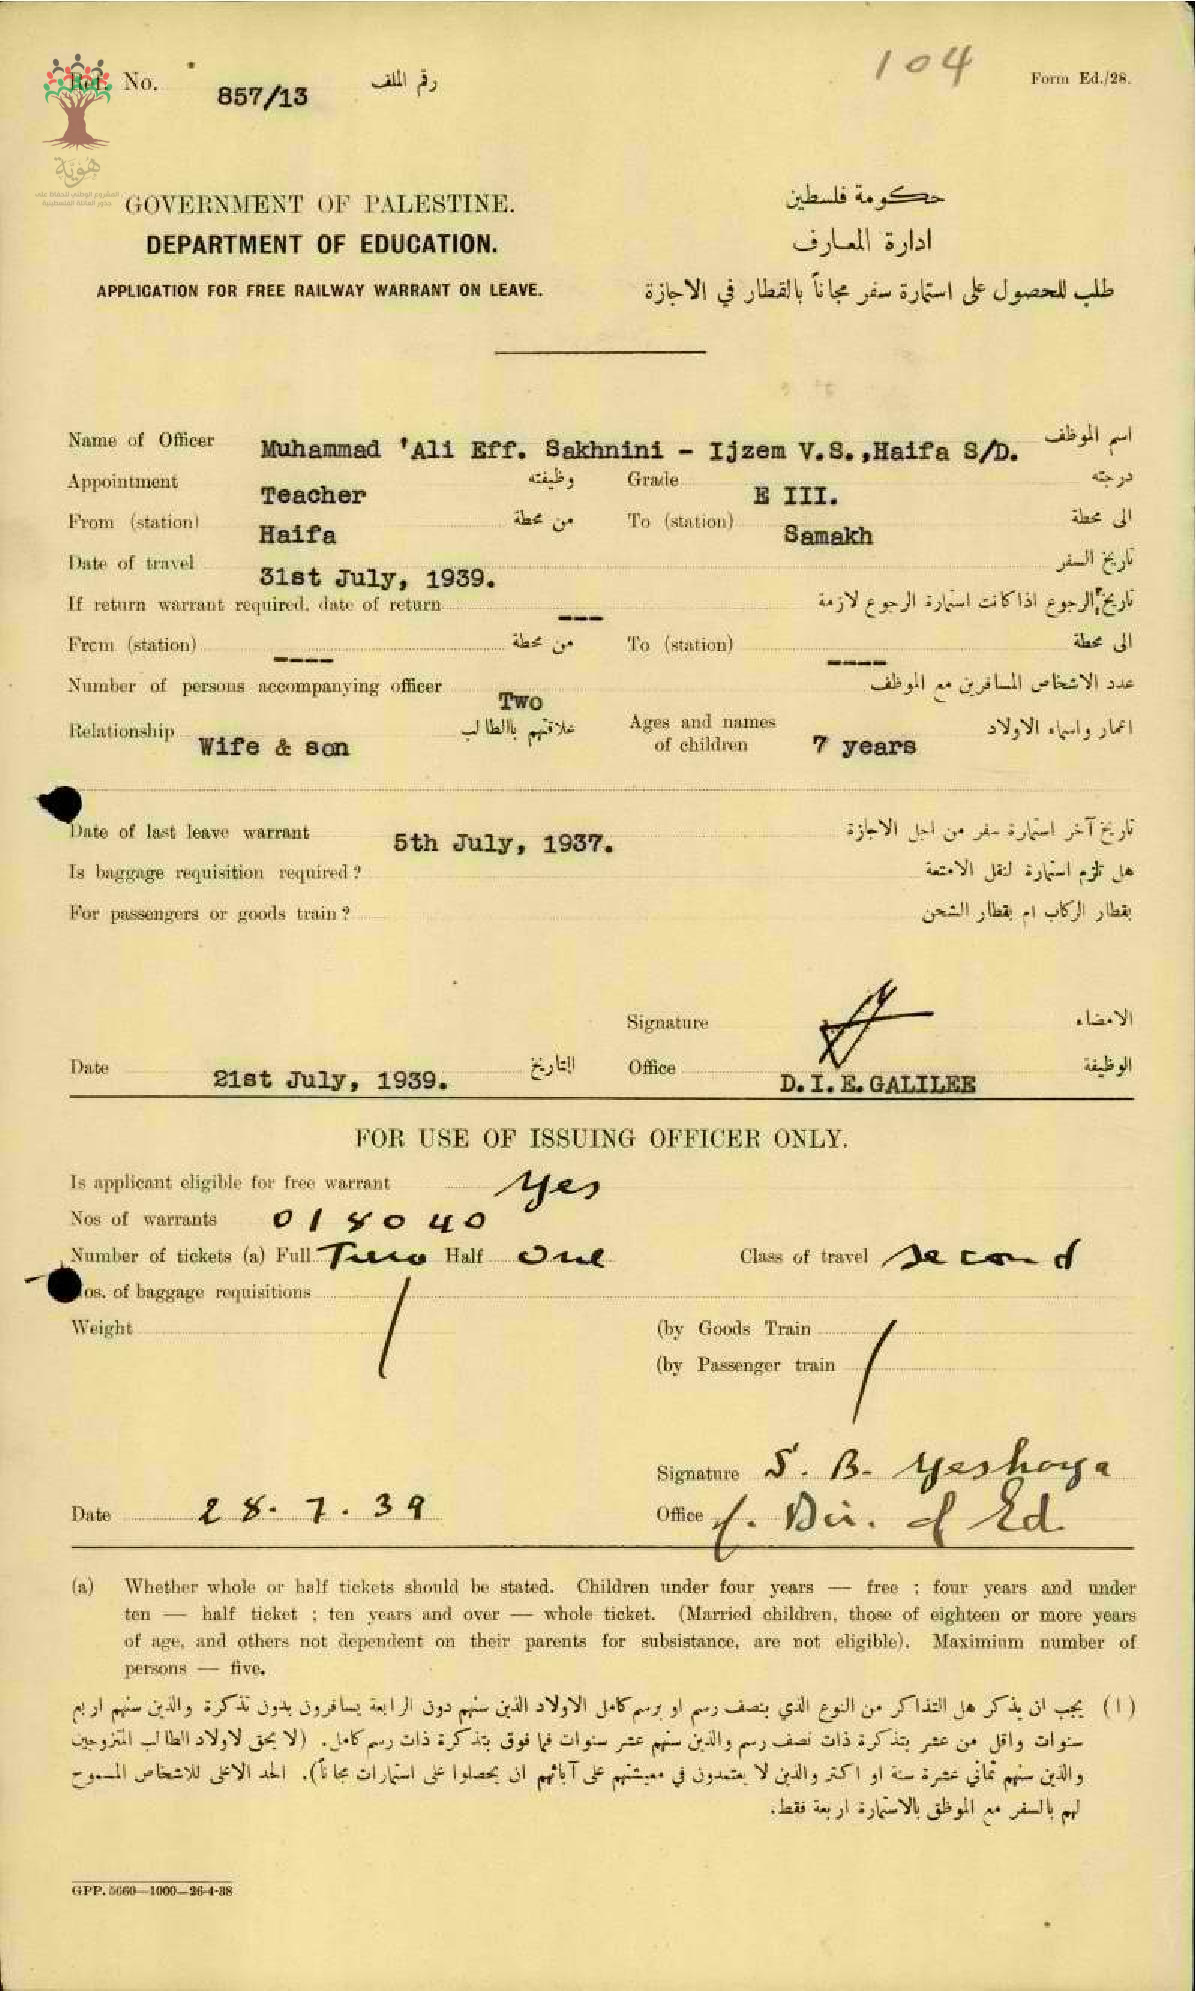 104
Form Ed./28.
Ref. No. 857/13 رقم الملف
هُوِيَّة
المشروع الوطني للحفاظ على
جذور العائلة الفلسطينية
GOVERNMENT OF PALESTINE. حكومة فلسطين
DEPARTMENT OF EDUCATION. ادارة المعارف
APPLICATION FOR FREE RAILWAY WARRANT ON LEAVE. طلب للحصول على استمارة سفر مجاناً بالقطار في الاجازة
Name of Officer Muhammad 'Ali Eff. Sakhnini - Ijzem V.S.,Haifa S/D. اسم الموظف
Appointment Teacher وظيفته Grade E III. درجته
From (station) Haifa من محطة To (station) Samakh الى محطة
Date of travel 31st July, 1939. تاريخ السفر
If return warrant required, date of return --- تاريخ الرجوع اذا كانت استمارة الرجوع لازمة
From (station) ---- من محطة To (station) ---- الى محطة
Number of persons accompanying officer Two عدد الاشخاص المسافرين مع الموظف
Relationship Wife & son علاقتهم باالطالب Ages and names of children 7 years اعمار واسماء الاولاد
Date of last leave warrant 5th July, 1937. تاريخ آخر استمارة سفر من اجل الاجازة
Is baggage requisition required ? هل تلزم استمارة لنقل الامتعة
For passengers or goods train ? بقطار الركاب ام بقطار الشحن
Signature الامضاء
Date 21st July, 1939. التاريخ Office D.I.E.GALILEE الوظيفة
FOR USE OF ISSUING OFFICER ONLY.
Is applicant eligible for free warrant yes
Nos of warrants 018040
Number of tickets (a) Full Two Half one Class of travel second
Nos. of baggage requisitions
Weight (by Goods Train
(by Passenger train
Signature S. B. Yeshaya
Date 28.7.39 Office f. Dir. of Ed.
(a) Whether whole or half tickets should be stated. Children under four years — free ; four years and under
ten — half ticket ; ten years and over — whole ticket. (Married children, those of eighteen or more years
of age, and others not dependent on their parents for subsistance, are not eligible). Maximium number of
persons — five.
(١) يجب ان يذكر هل التذاكر من النوع الذي بنصف رسم او برسم كامل الاولاد الذين سنهم دون الرابعة يسافرون بدون تذكرة والذين سنهم اربع
سنوات واقل من عشر بتذكرة ذات نصف رسم والذين سنهم عشر سنوات فما فوق بتذكرة ذات رسم كامل. (لا يحق لاولاد الطالب المتزوجين
والذين سنهم ثماني عشرة سنة او اكثر والذين لا يعتمدون في معيشتهم على آبائهم ان يحصلوا على استمارات مجاناً). الحد الاعلى للاشخاص المسموح
لهم بالسفر مع الموظق بالاستمارة اربعة فقط.
GPP. 5660—1000—26-4-38